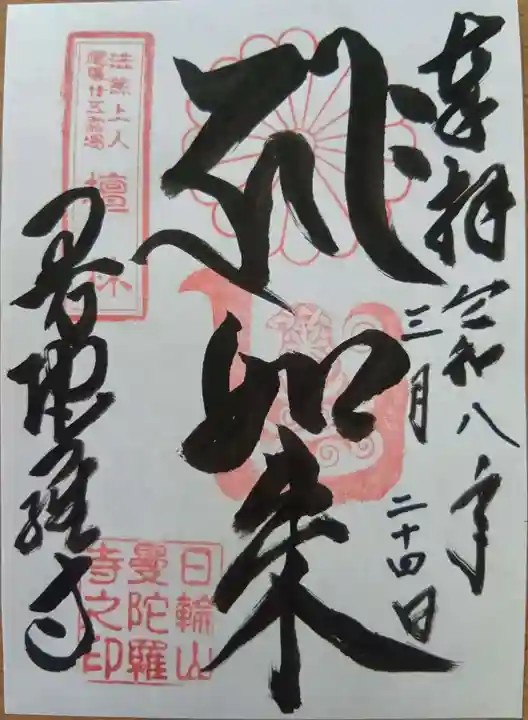 奉拝
令和八年
三月
二十四日
如来
法然上人
廿五霊場
檀林
曼陀羅寺
日輪山
曼陀羅
寺之印